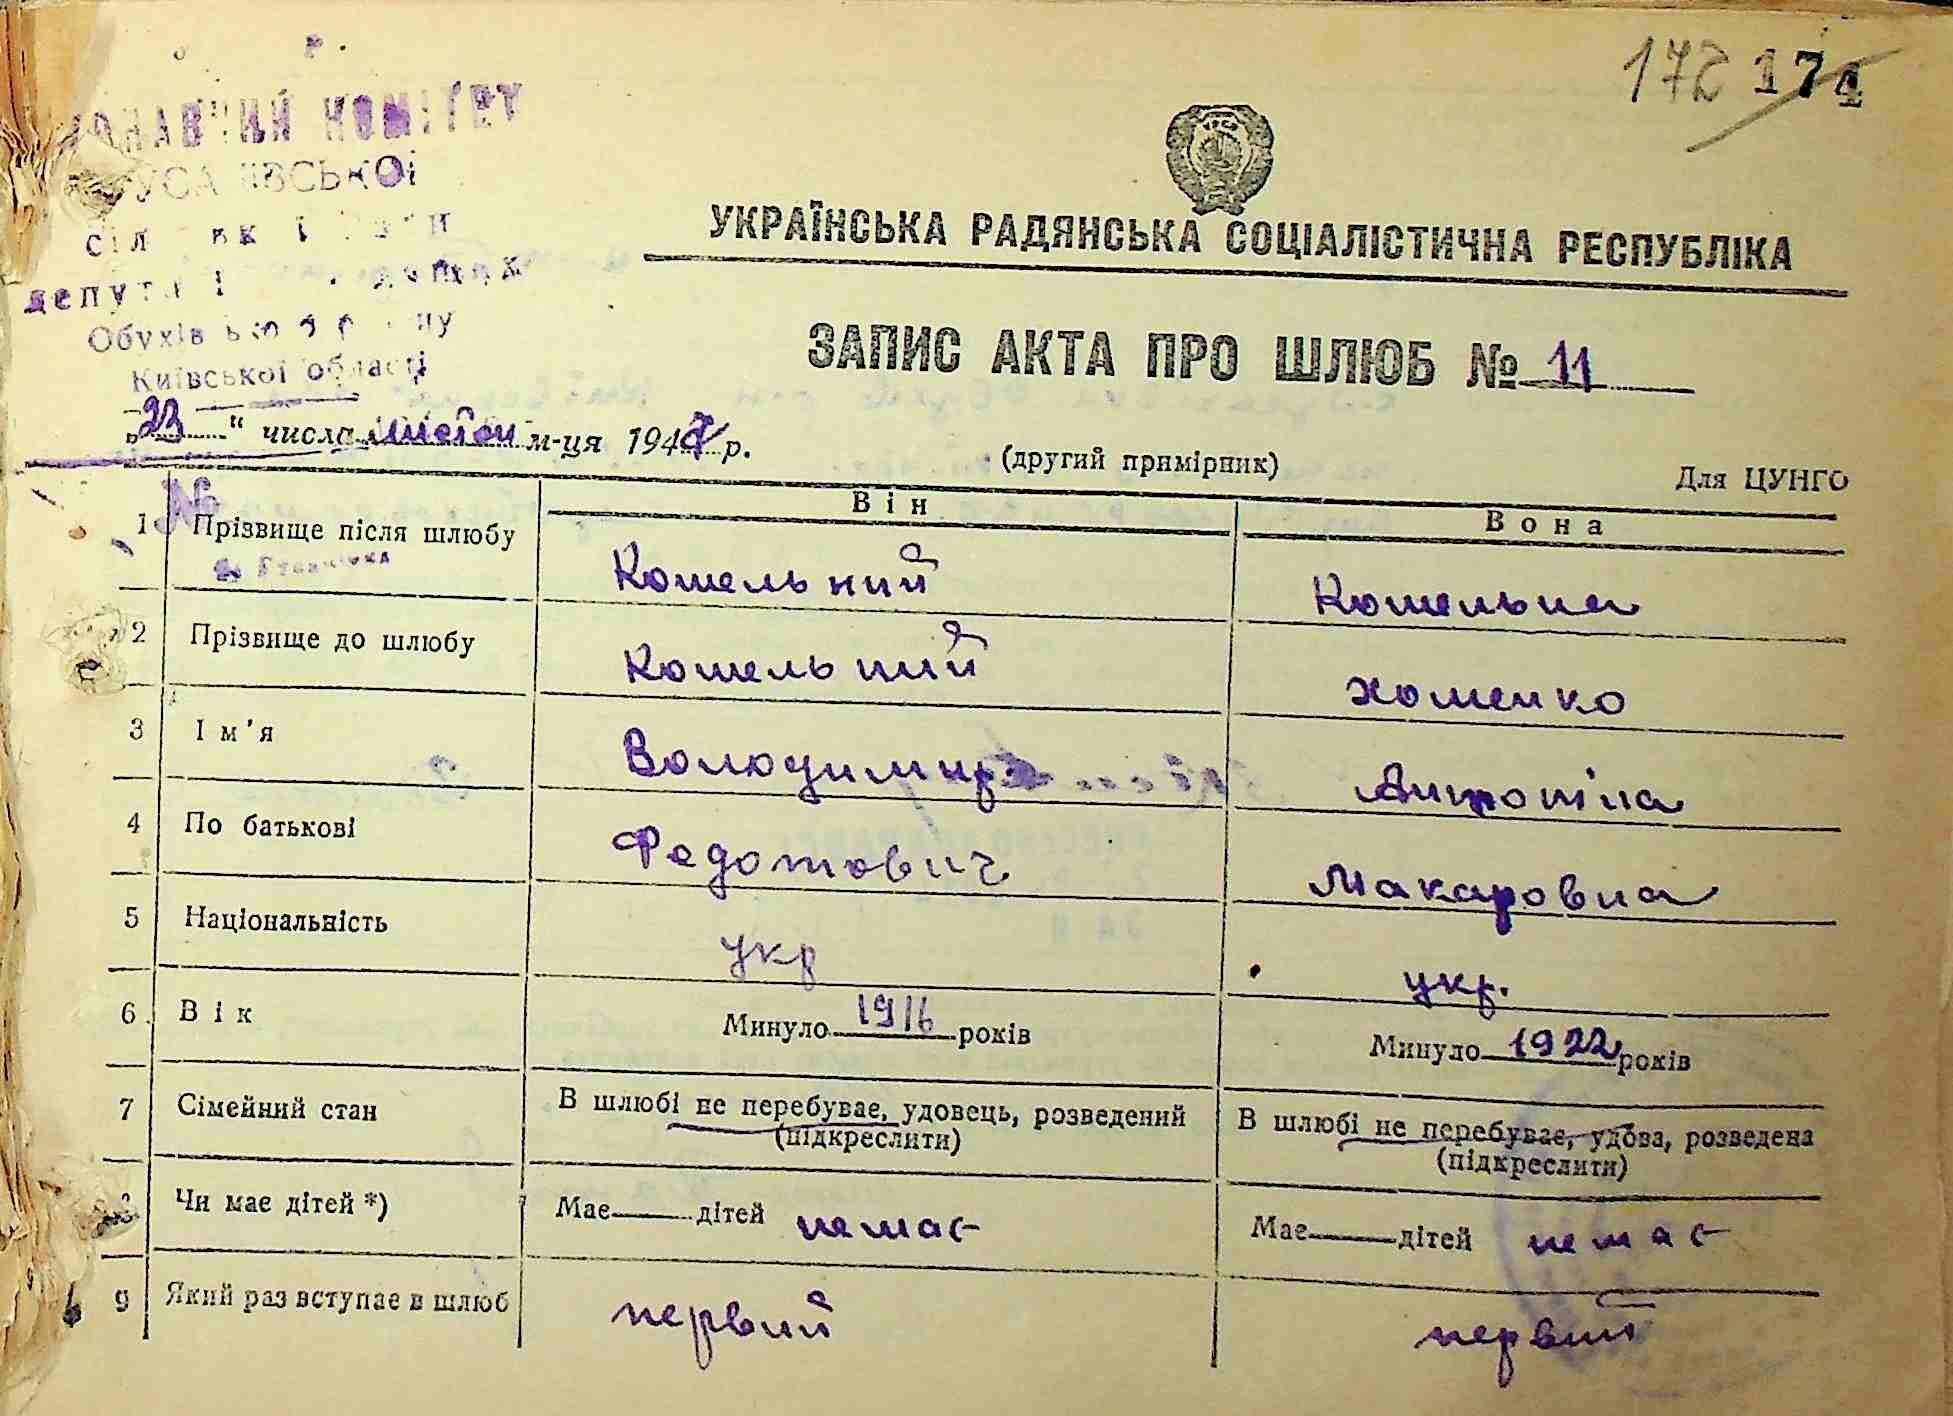 172 174
КОМІТЕТ
УКРАЇНСЬКА РАДЯНСЬКА СОЦІАЛІСТИЧНА РЕСПУБЛІКА
Київської області
ЗАПИС АКТА ПРО ШЛЮБ № 11
„23“ числа м-ця 1947 р.
(другий примірник)
Для ЦУНГО
Він Вона
1 Прізвище після шлюбу Кошельний Кошельна
2 Прізвище до шлюбу Кошельний Хоменко
3 Ім'я Володимир Антоніна
4 По батькові Федотович Макаровна
5 Національність укр укр.
6 Вік Минуло 1916 років Минуло 1922 років
7 Сімейний стан В шлюбі не перебуває, удовець, розведений В шлюбі не перебуває, удова, розведена
(підкреслити) (підкреслити)
8 Чи має дітей *) Має дітей немає Має дітей немає
9 Який раз вступає в шлюб первий первий